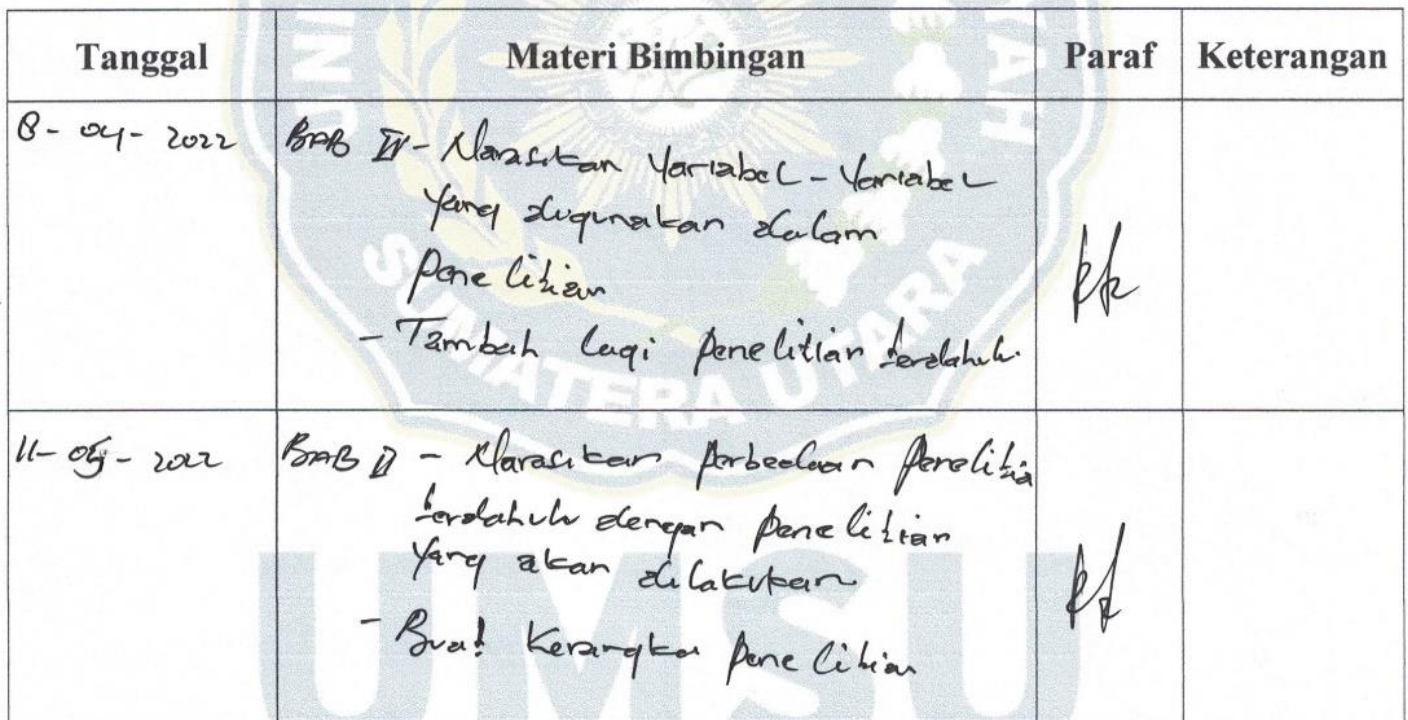 Tanggal Materi Bimbingan Paraf Keterangan
8-04-2022 BAB II - Narasikan Variabel-Variabel
yang digunakan dalam
penelitian
- Tambah lagi penelitian terdahulu.
11-05-2022 BAB II - Narasikan perbedaan penelitia
terdahulu dengan penelitian
yang akan dilakukan
- Buat Kerangka penelitian
SUMATERA UTARA
UMSU